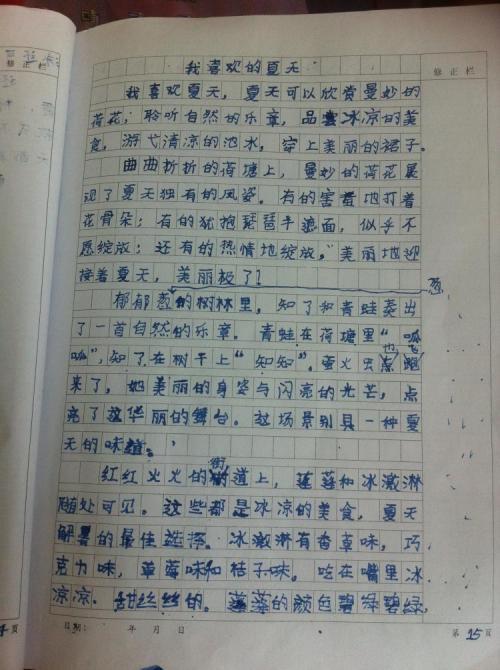 修正栏
修正栏
我喜欢的夏天
我喜欢夏天，夏天可以欣赏曼妙的
荷花；聆听自然的乐章，品尝冰凉的美
食，游弋清凉的池水，穿上美丽的裙子。
曲曲折折的荷塘上，曼妙的荷花展
现了夏天独有的风姿。有的害羞地打着
花骨朵；有的犹抱琵琶半遮面，似乎不
愿绽放；还有的热情地绽放，美丽地迎
接着夏天，美丽极了！
葱
郁郁葱的树林里，知了和青蛙奏出
了一首自然的乐章。青蛙在荷塘里“呱
呱”，知了在树干上“知知”。萤火虫也飞
来了，她美丽的身姿与闪亮的光芒，点
亮了这华丽的舞台。这场景别具一种夏
天的味道。
红红火火的街道上，莲蓬和冰激淋
随处可见。这些都是冰凉的美食，夏天
解暑的最佳选择。冰激淋有香草味，巧
克力味，草莓味和桔子味。吃在嘴里冰
凉凉，甜丝丝的。莲蓬的颜色碧绿碧绿，
日期： 年 月 日 第15页
页